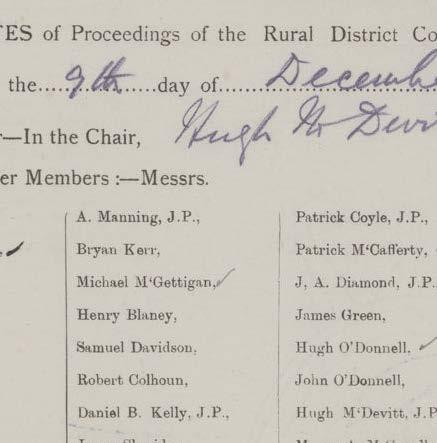 TES of Proceedings of the Rural District Co
the.....9th.....day of.......Decembe
r—In the Chair, Hugh Mc Devi
er Members :—Messrs.
A. Manning, J.P., Patrick Coyle, J.P.,
Bryan Kerr, Patrick M‘Cafferty,
Michael M‘Gettigan, J, A. Diamond, J.P.
Henry Blaney, James Green,
Samuel Davidson, Hugh O'Donnell,
Robert Colhoun, John O'Donnell,
Daniel B. Kelly, J.P., Hugh M‘Devitt, J.P